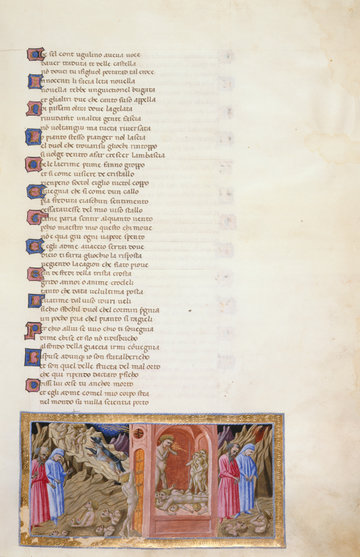 Che sel cont ugulino aveva voce
daver traduta te delle castella
nō dovei tu ifigluol portanto tal croce
Innocenti li facia leta novella
novella tebbe unguicione il brigata
et glialtri due che canto suso appella
Noi passam oltre dove lagelata
ruvidamente unaltra gente fascia
nō voltangiu ma tucta riversata
Lo pianto stesso piāger nol lascia
el duol che trovansu gliochi rintoppo
si volge dentro afar crescer lambascia
Che le lacrime prime fanno groppo
et si come visiere de cristallo
riempeno soctol ciglio tuctol coppo
Et avegnia che si come dun callo
p la fredura ciaschun sentimento
cessatavesse del mio viso stallo
Gia me paria sentir alquanto vento
pchio maestro mio questo chi move
nō e qua giu ogni vapore spento
Et egli adme avaccio serrai dove
dicio ti farra gliochio la risposta
vegiendo lacagion che fiato piove
Et un de fredi della trista crosta
grido annoi o anime crudeli
tanto che data velultima posta
Levatime dal viso iduri veli
sichio sfochil duol chel cor mi pregnia
un pocho pria chel pianto si ragieli
Per chio allui se vuoi chio ti sovegnia
dime chise et sio nō ti disbricho
alfondo della giaccia irmi cōvegnia
Rispuse adunqu io son fratalbericho
et son quel delle fructa del mal orto
che qui riprendo dactaro p ficho
O dissi lui orse tu anchor morto
et egli adme comel mio corpo stea
nel mondo su nulla scientia porto